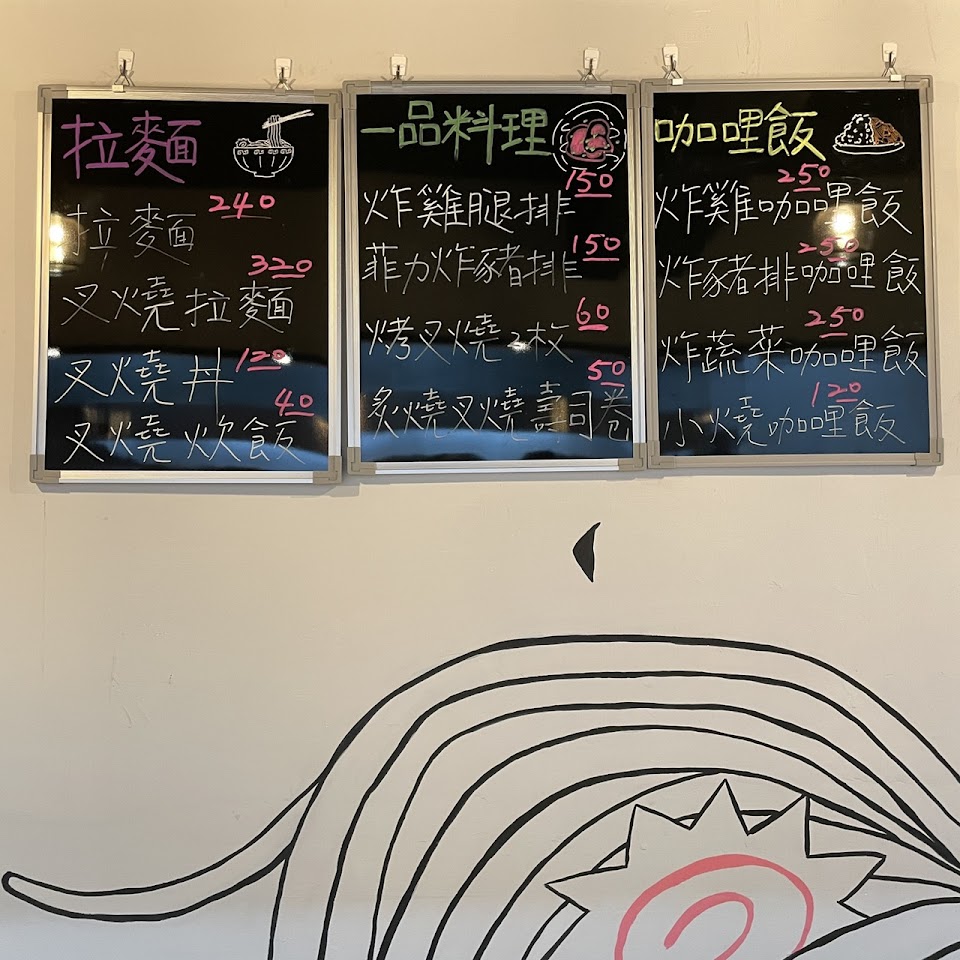 拉麵
拉麵 240
叉燒拉麵 320
叉燒丼 120
叉燒炊飯 40
一品料理
炸雞腿排 150
菲力炸豬排 150
烤叉燒2枚 60
炙燒叉燒壽司卷 50
咖哩飯
炸雞咖哩飯 250
炸豬排咖哩飯 250
炸蔬菜咖哩飯 250
小燒咖哩飯 120